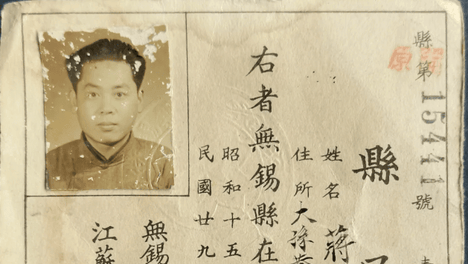 縣第15441號
縣
姓名 蔣
住所 大孫巷
右者無錫縣在
昭和十五
民國廿九
無錫
江蘇